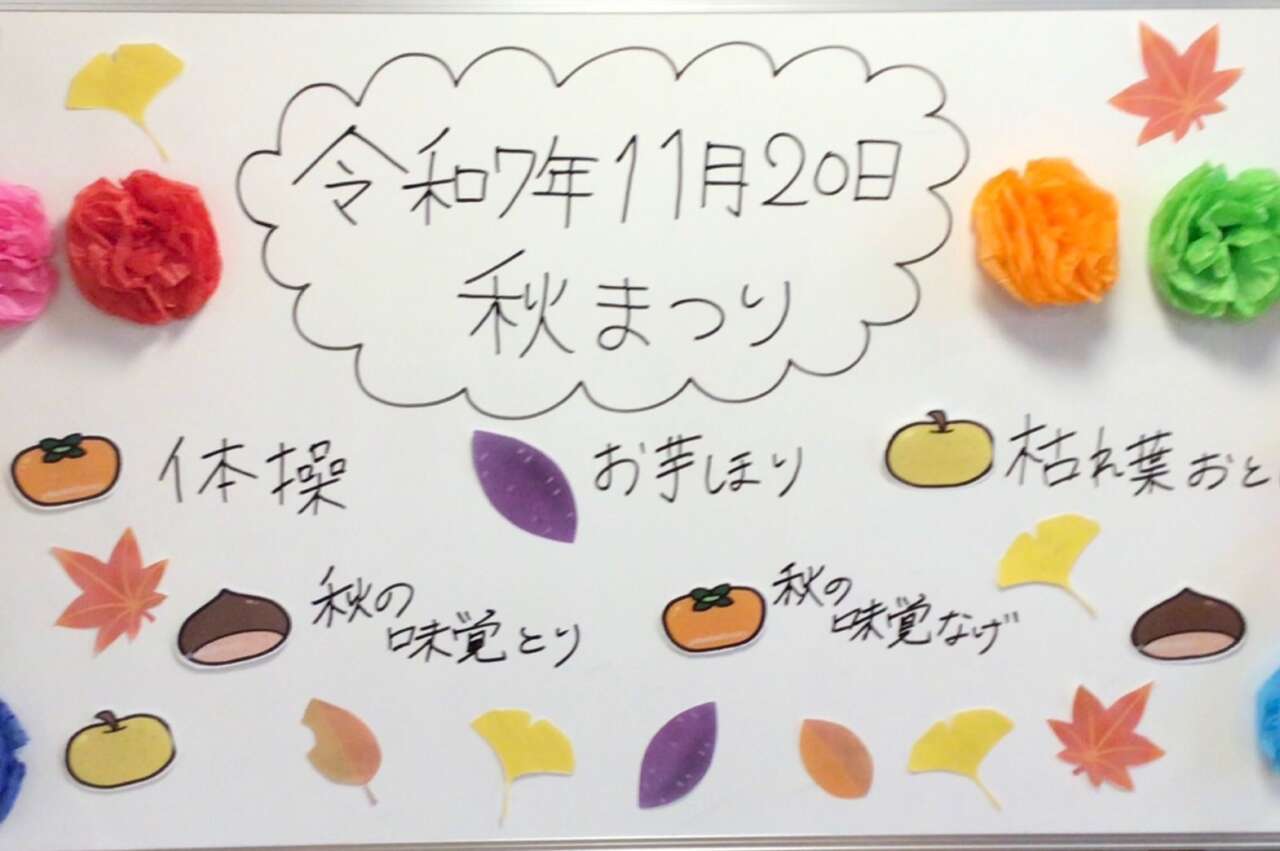 令和7年11月20日
秋まつり
体操
お芋ほり
枯れ葉おと
秋の
味覚とり
秋の
味覚なげ